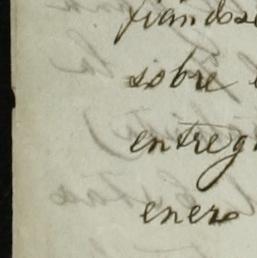 fiandose
sobre
entreg
enero